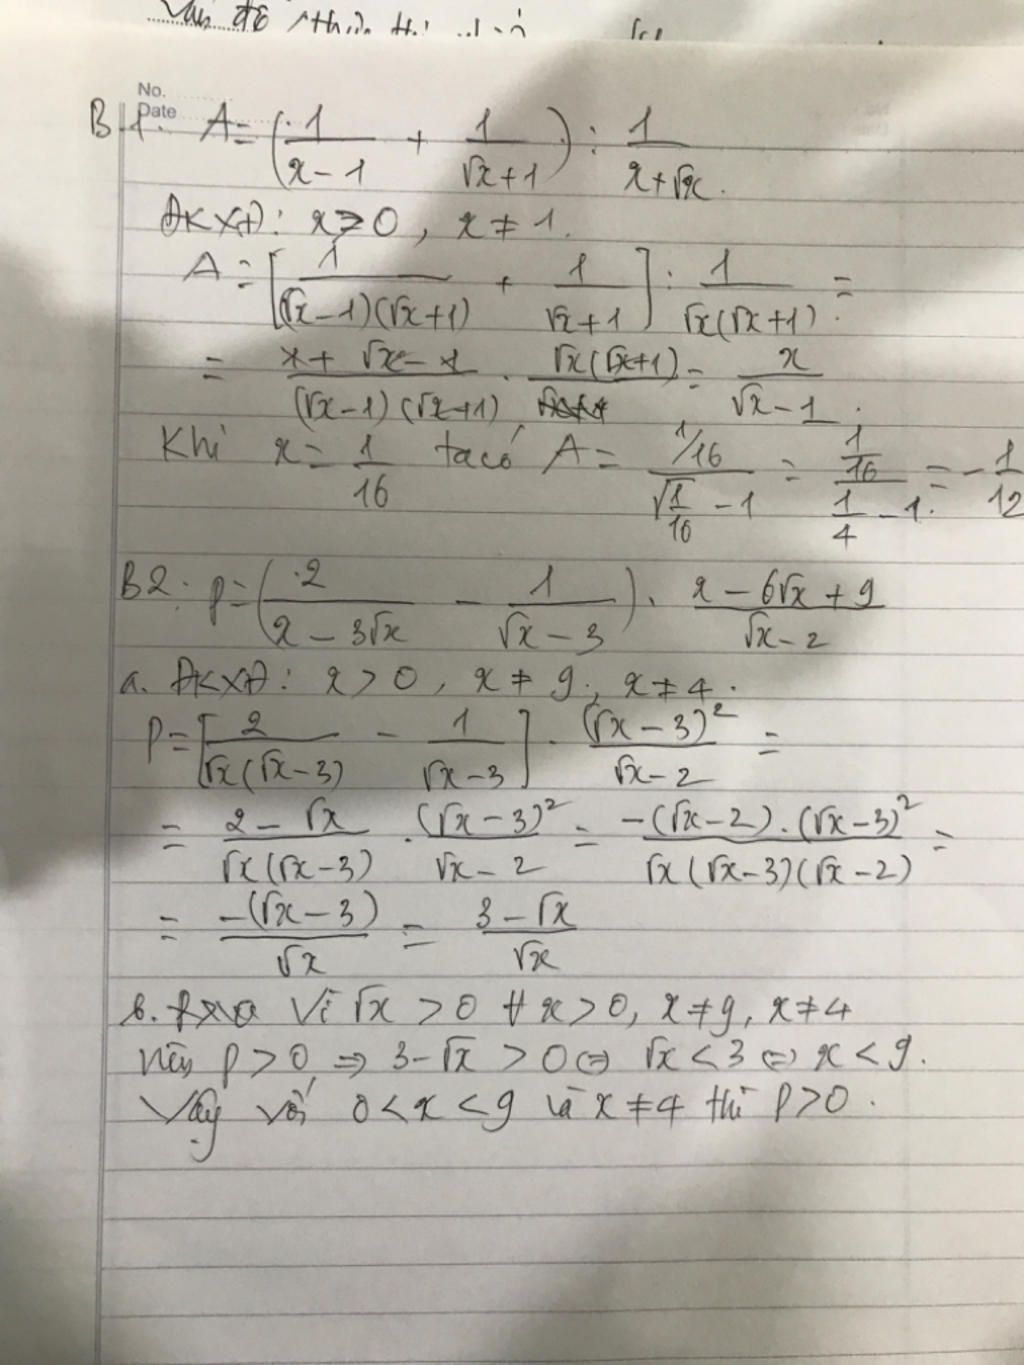 No.
Date
B1. A = (1/(x-1) + 1/(√x+1)) : 1/(x+√x).
ĐKXĐ: x ≥ 0, x ≠ 1.
A = [1/((√x-1)(√x+1)) + 1/(√x+1)] : 1/(√x(√x+1)) =
= (1 + √x - 1)/((√x-1)(√x+1)) · √x(√x+1) = x/(√x-1).
Khi x = 1/16 ta có A = (1/16)/(√(1/16) - 1) = (1/16)/(1/4 - 1) = -1/12
B2. P = (2/(x - 3√x) - 1/(√x - 3)) . (x - 6√x + 9)/(√x - 2)
a. ĐKXĐ: x > 0, x ≠ 9; x ≠ 4.
P = [2/(√x(√x-3)) - 1/(√x-3)] · (√x-3)²/(√x-2) =
= (2-√x)/(√x(√x-3)) · (√x-3)²/(√x-2) = (-(√x-2).(√x-3)²)/(√x(√x-3)(√x-2)) =
= -(√x-3)/√x = (3-√x)/√x
b. Vì √x > 0 ∀ x > 0, x ≠ 9, x ≠ 4
nên P > 0 ⇒ 3-√x > 0 ⇔ √x < 3 ⇔ x < 9.
Vậy với 0 < x < 9 và x ≠ 4 thì P > 0.